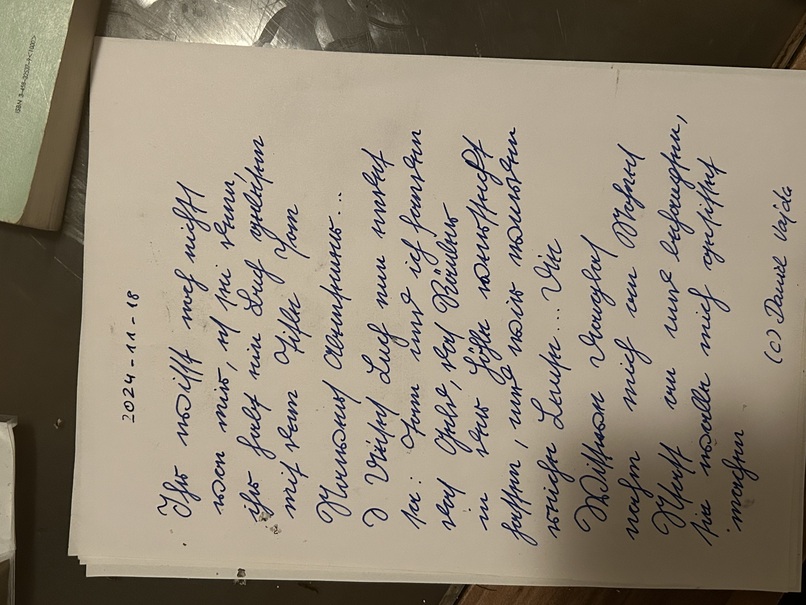 ISBN 3-458-32537-9 <1000>
2024-11-18
Ihr wisst noch nichts
von mir, es sei denn,
ihr habt ein Buch gelesen
mit dem Titel Tom
Sawyers Abenteuer...
Dieses Buch nun endet
so: Tom und ich fanden
das Geld, das Räuber
in der Höhle versteckt
hatten, und wir wurden
reiche Leute... Die
Witwe Douglas
nahm mich an Sohnes
Statt an und behauptete,
sie wolle mich gesittet
machen
(c) Daniel Vajda